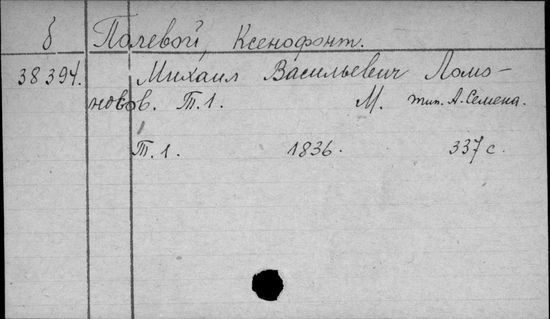 б Полевой, Ксенофонт.
38394. Михаил Васильевич Ломо-
носов. Т. 1. М. тип. А. Семена.
Т. 1. 1836. 337 с.